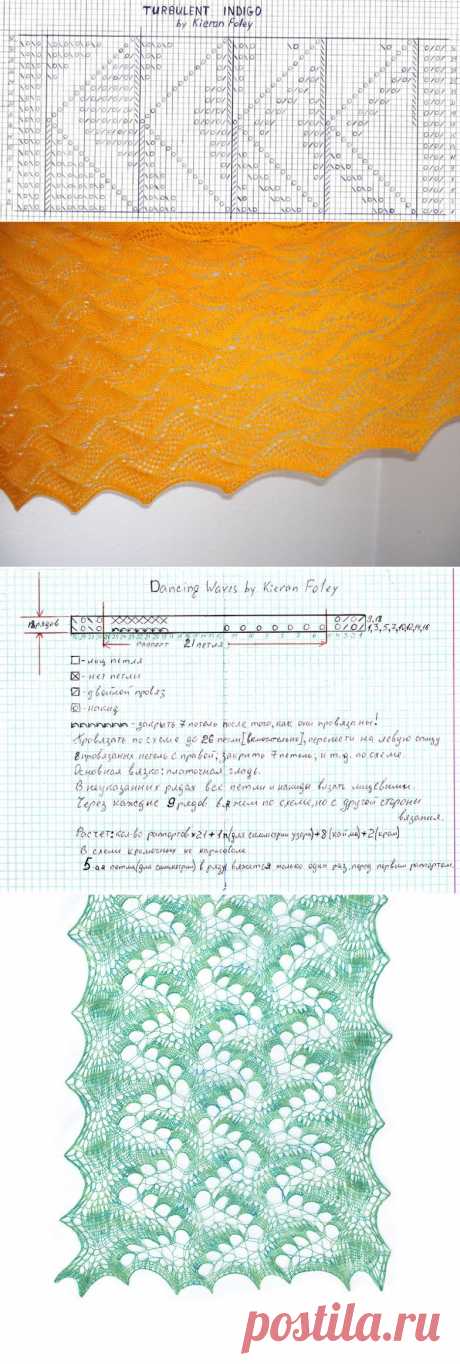 TURBULENT INDIGO
by Kieran Foley
Dancing Waves by Kieran Foley
рядов
раппорт 21 петля
9,18
1,3,5,7,10,12,14,16
- лиц петля
- нет петли
- двойной провяз
- накид
- закрыть 7 петель после того, как они провязаны!
Провязать по схеме до 26 петли [включительно], перенести на левую спицу
8 провязанных петель с правой, закрыть 7 петель, и т.д. по схеме.
Основная вязка: платочная гладь.
В неуказанных рядах все петли и накиды вязать лицевыми.
Через каждые 9 рядов вяжем по схеме, но с другой стороны
вязания.
Расчет: кол-во раппортов х 21 + 1п (для симметрии узора) + 8 (кайма) + 2 (кром)
В схеме кромочные не нарисовала
5-ая петля (для симметрии) в ряду вяжется только один раз, перед первым раппортом.
postila.ru